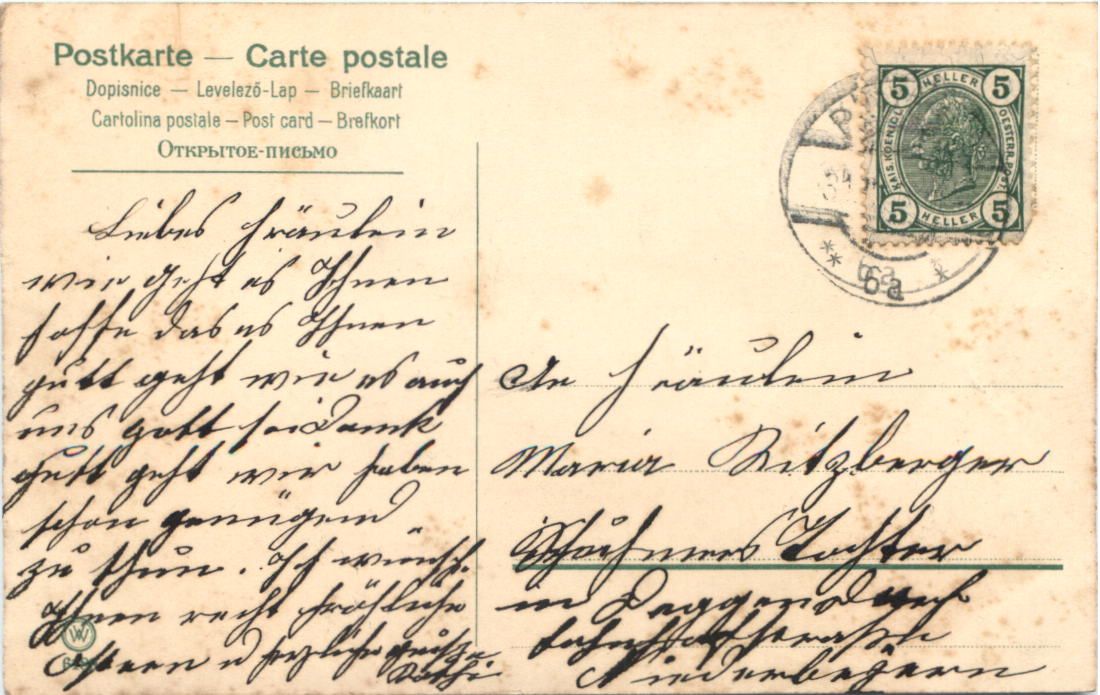 Postkarte — Carte postale
Dopisnice — Levelező-Lap — Briefkaart
Cartolina postale — Post card — Brefkort
Открытое-письмо
5 HELLER 5
KAIS. KOENIGL. OESTERR. POST.
5 HELLER 5
6a
Liebes Fräulein
wie geht es Ihnen
hoffe das es Ihnen
gutt geht wie es auch
uns gott sei Dank
gutt geht wir haben
schon genügend
zu thun. Ich wünsch.
Ihnen recht fröhliche
Ostern u herzliche grüße
Kathi
An Fräulein
Maria Ritzberger
Tochter
in Deggendorf
Bahnhofstrasse
Niederbayern
W